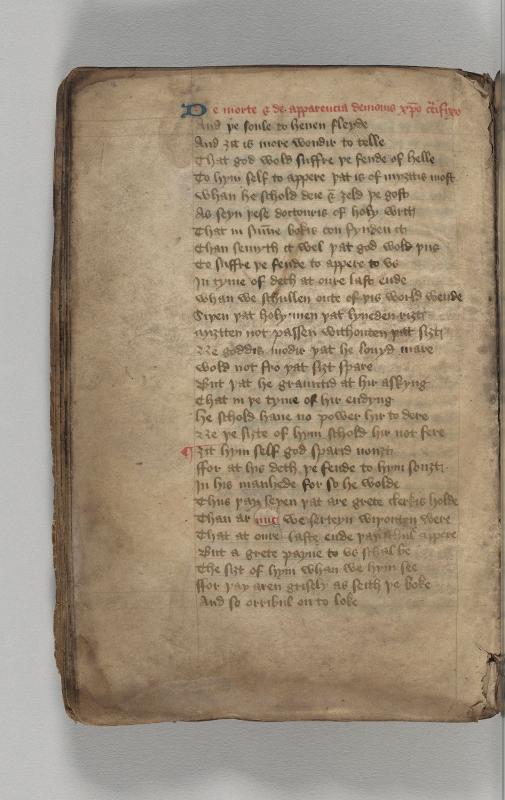 De morte & de apparencia demonis xpo
And þe soule to heuen fleyde
And ȝit is more wondir to telle
That god wold suffre þe fende of helle
To hym self to appere þat is of myȝtis most
Whan he schold deie & ȝeld þe gost
As seyn þese doctouris of holy writt
That in su̅me bokis con fynden it
Than semyth it wel þat god wold þus
To suffre þe fende to appere to vs
In tyme of deth at oure last ende
Whan we schullen oute of þis world wende
Siþen þat holy men þat lyueden riȝt
Myȝtten not passen withouten þat siȝt
Ne goddis modir þat he louyd mare
Wold not fro þat siȝt spare
But þat he grauntid at hir askyng
That in þe tyme of hir endyng
He schold haue no power hir to dere
Ne þe siȝte of hym schold hir not fere
¶ Ȝit hym self god sparid nouȝt
ffor at his deth þe fende to hym souȝt
In his manhede for so he wolde
Thus þay seyen þat are grete clerkis holde
Than ar we serteyn wiþouten were
That at oure laste ende þay schul appere
But a grete payne to vs schal be
The siȝt of hym whan we hym see
ffor þay aren grisely as seith þe boke
And so orribul on to loke